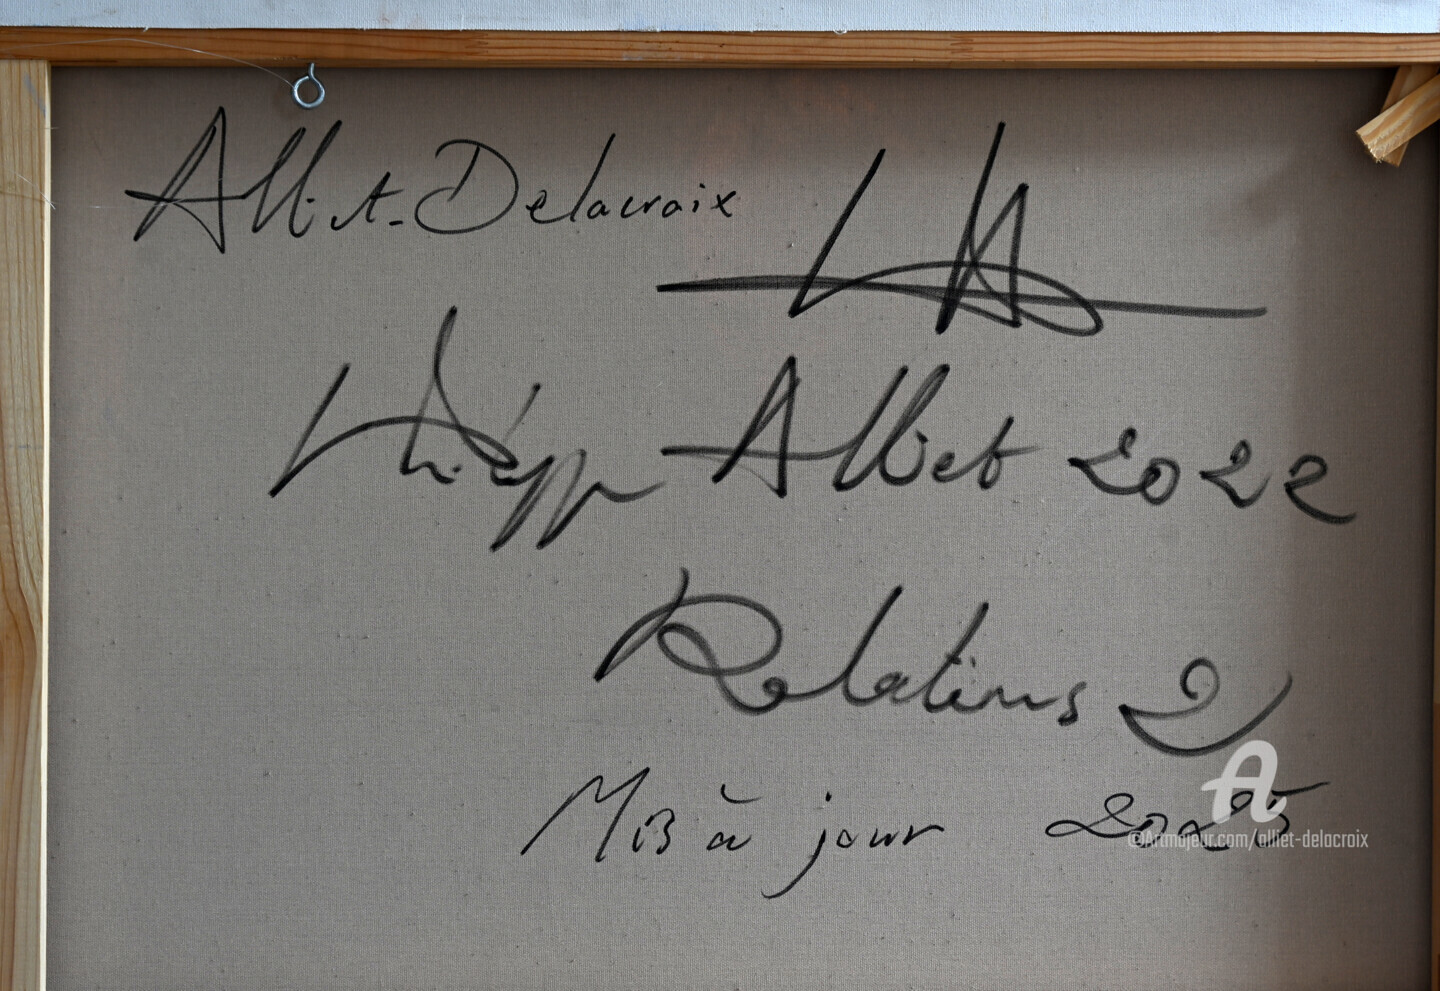 Alliet-Delacroix
Philippe Alliet 2022
Relations 2
Mis à jour 2025
©Artmajeur.com/alliet-delacroix